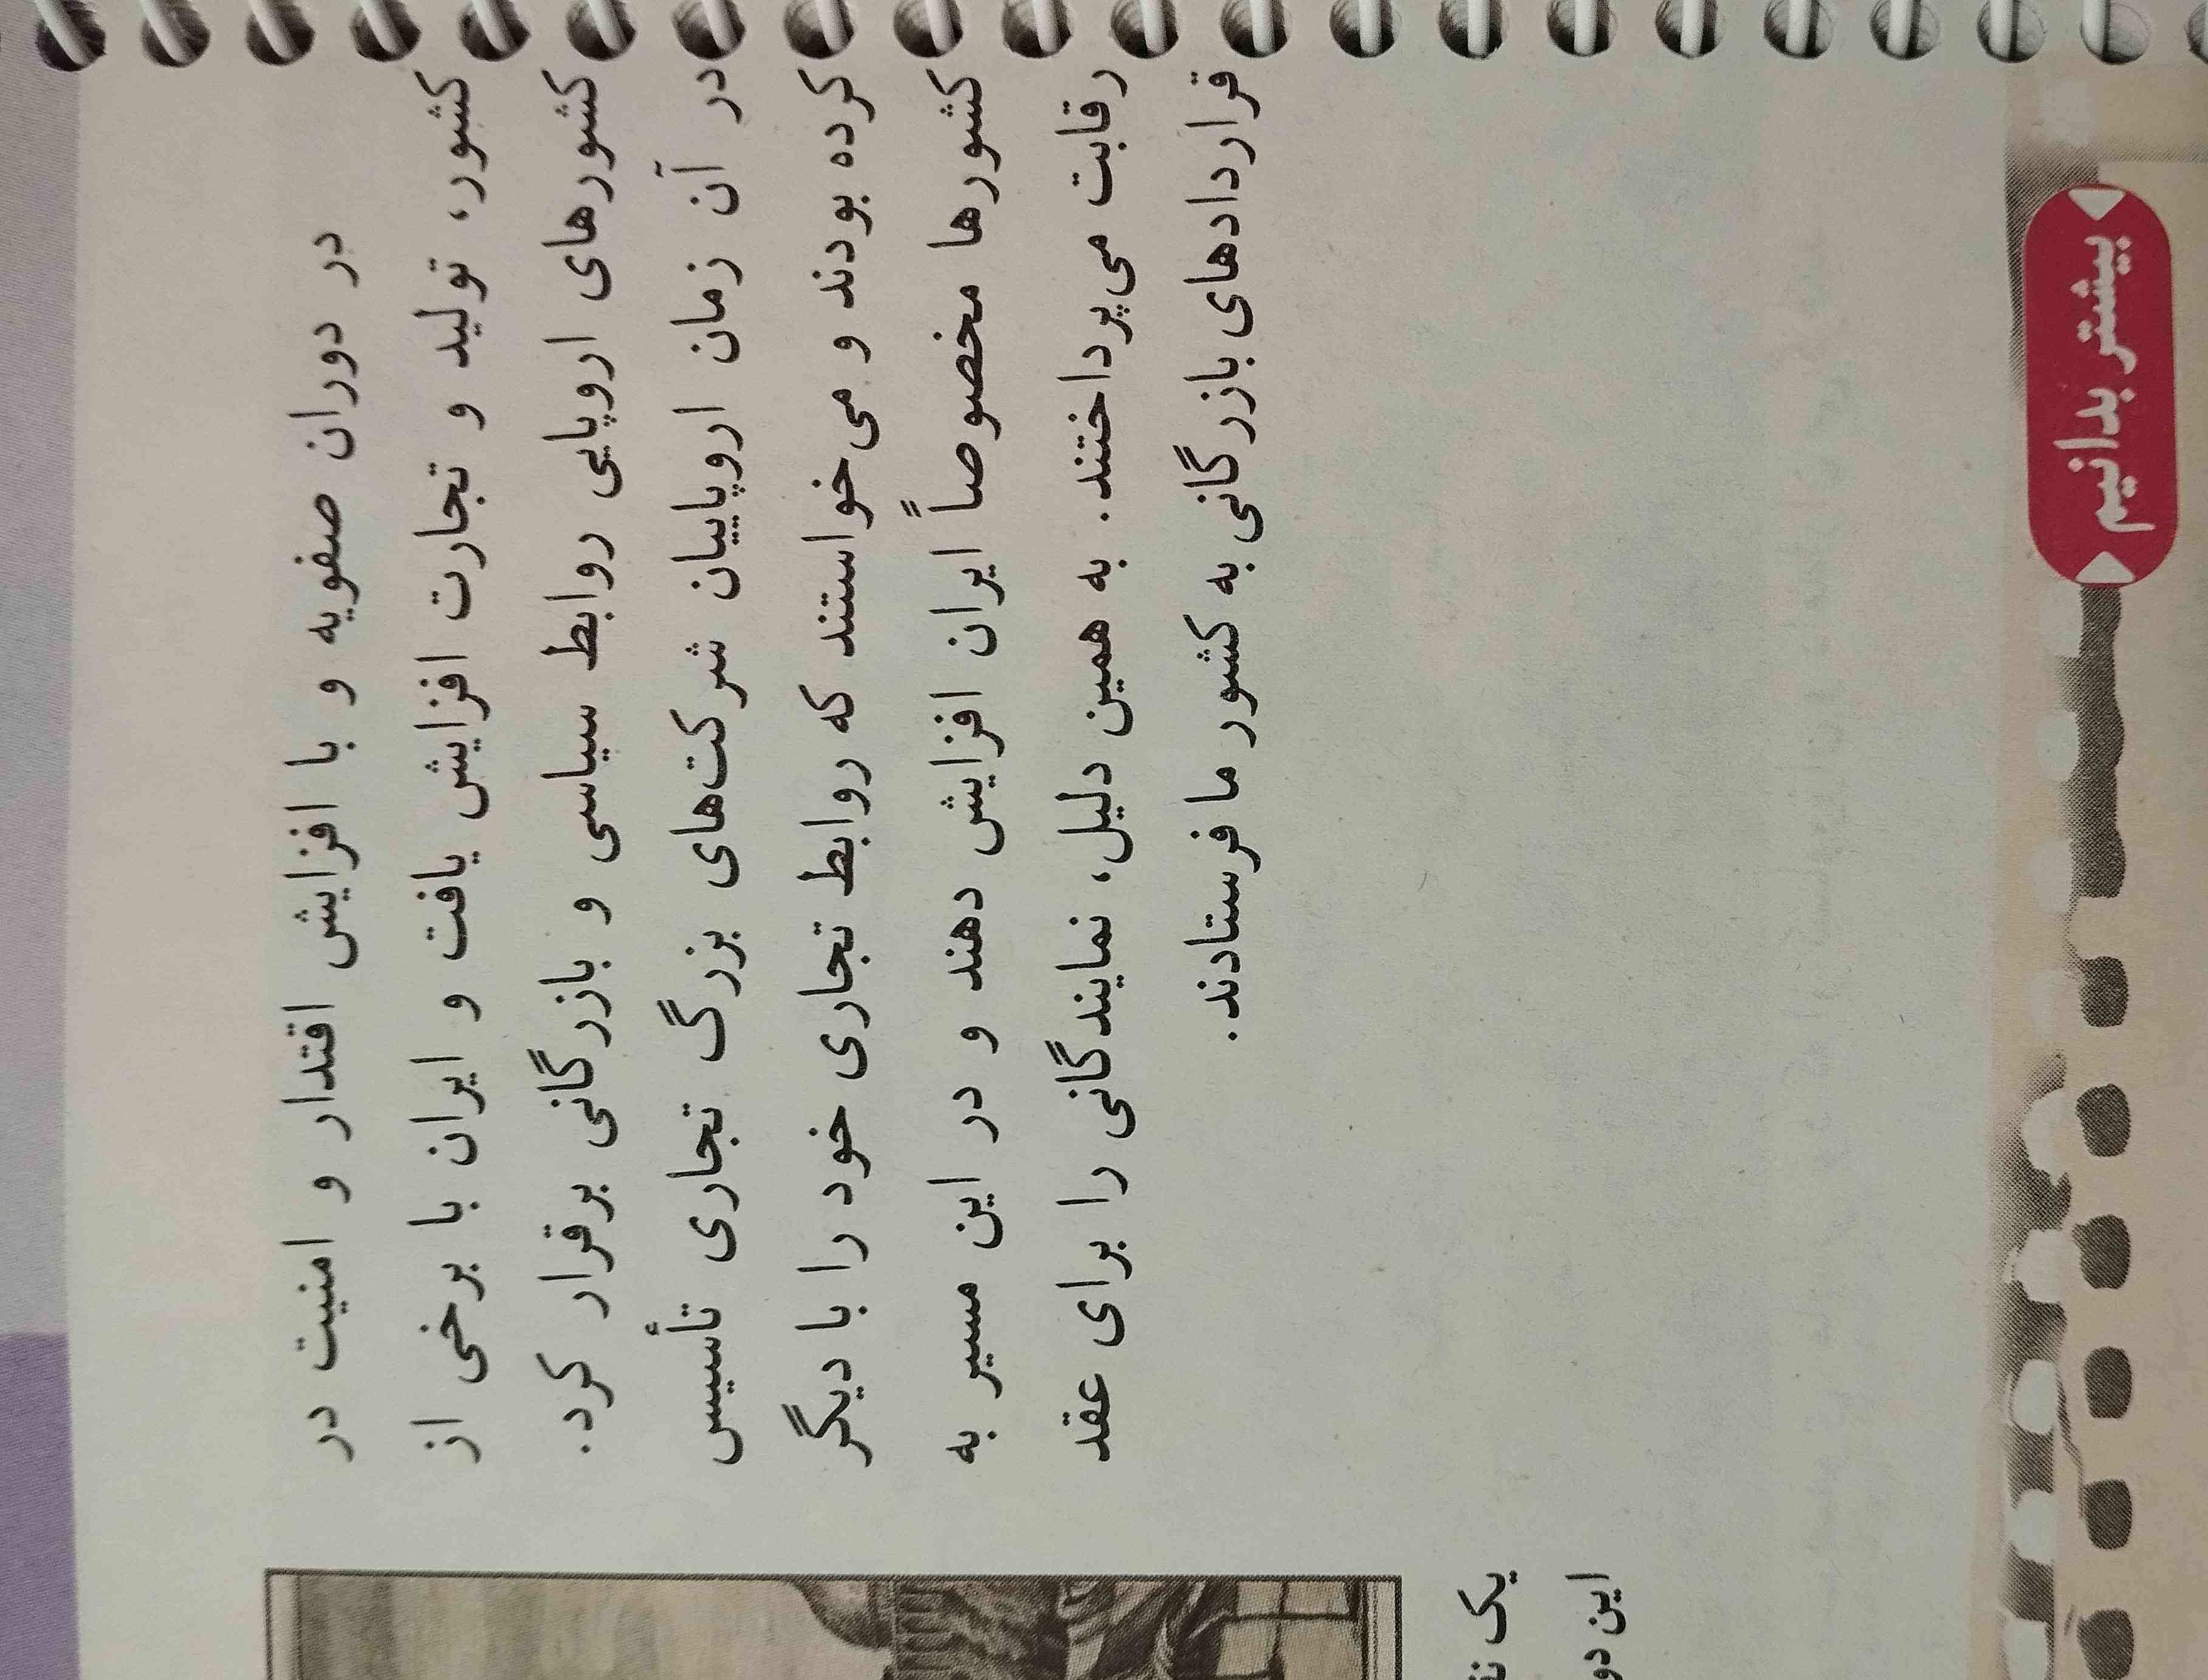 در دوران صفویه و با افزایش اقتدار و امنیت در
کشور، تولید و تجارت افزایش یافت و ایران با برخی از
کشورهای اروپایی روابط سیاسی و بازرگانی برقرار کرد.
در آن زمان اروپاییان شرکت‌های بزرگ تجاری تأسیس
کرده بودند و می‌خواستند که روابط تجاری خود را با دیگر
کشورها مخصوصاً ایران افزایش دهند و در این مسیر به
رقابت می‌پرداختند. به همین دلیل، نمایندگانی را برای عقد
قراردادهای بازرگانی به کشور ما فرستادند.
یک
این دو
بیشتر بدانیم